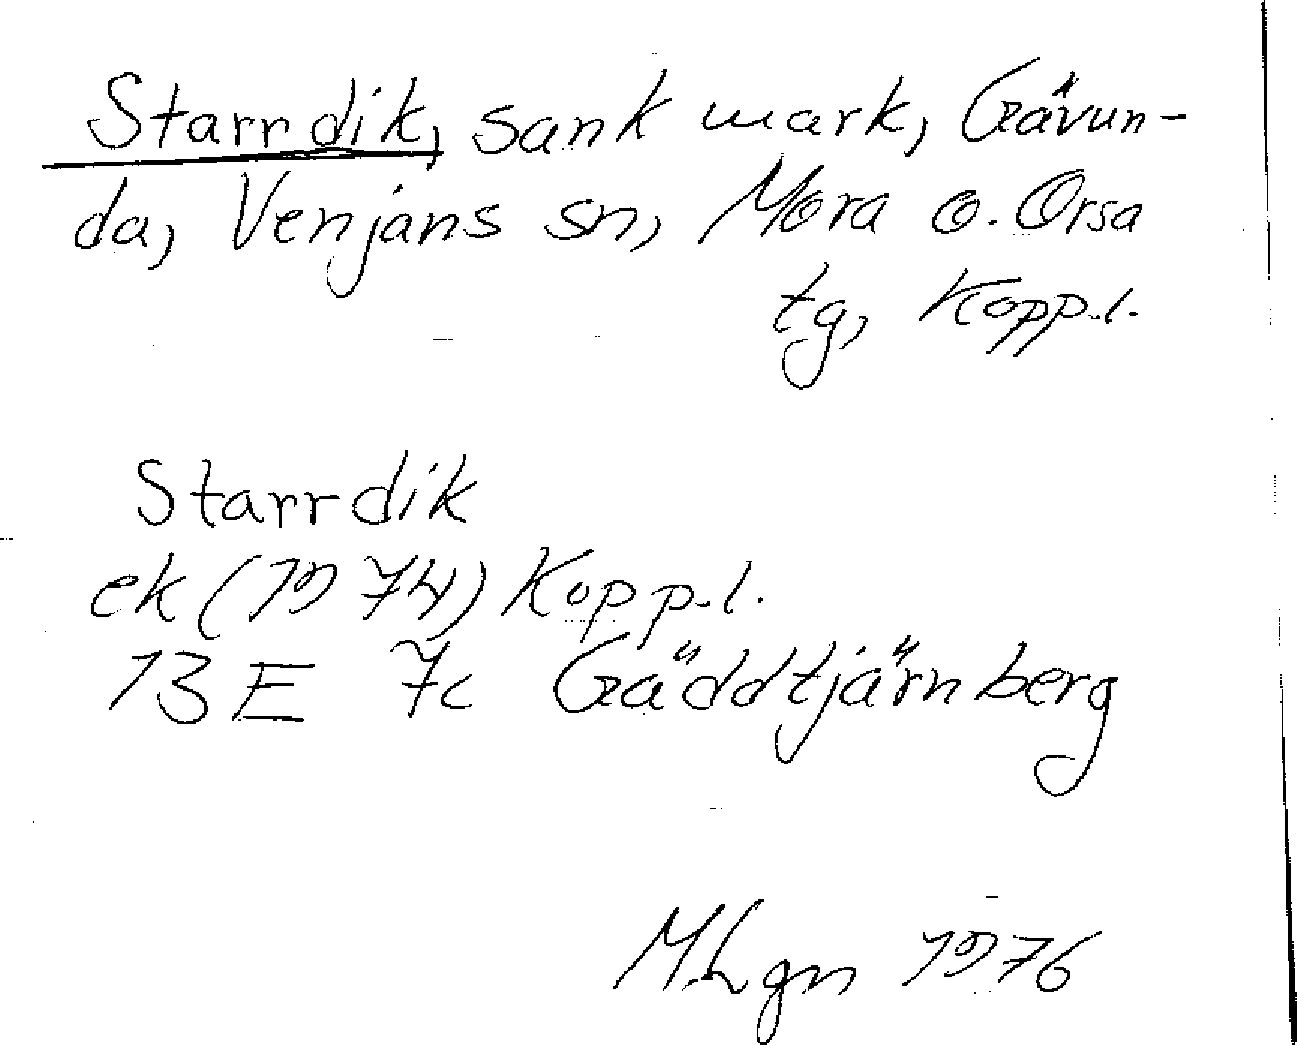 Starrdik, sank mark, Gävun-
da, Venjans sn, Mora o. Orsa
tg, Kopp.l.
Starrdik
ek (1974) Kopp.l.
13 E 7c Gäddtjärnberg
MLgn 1976